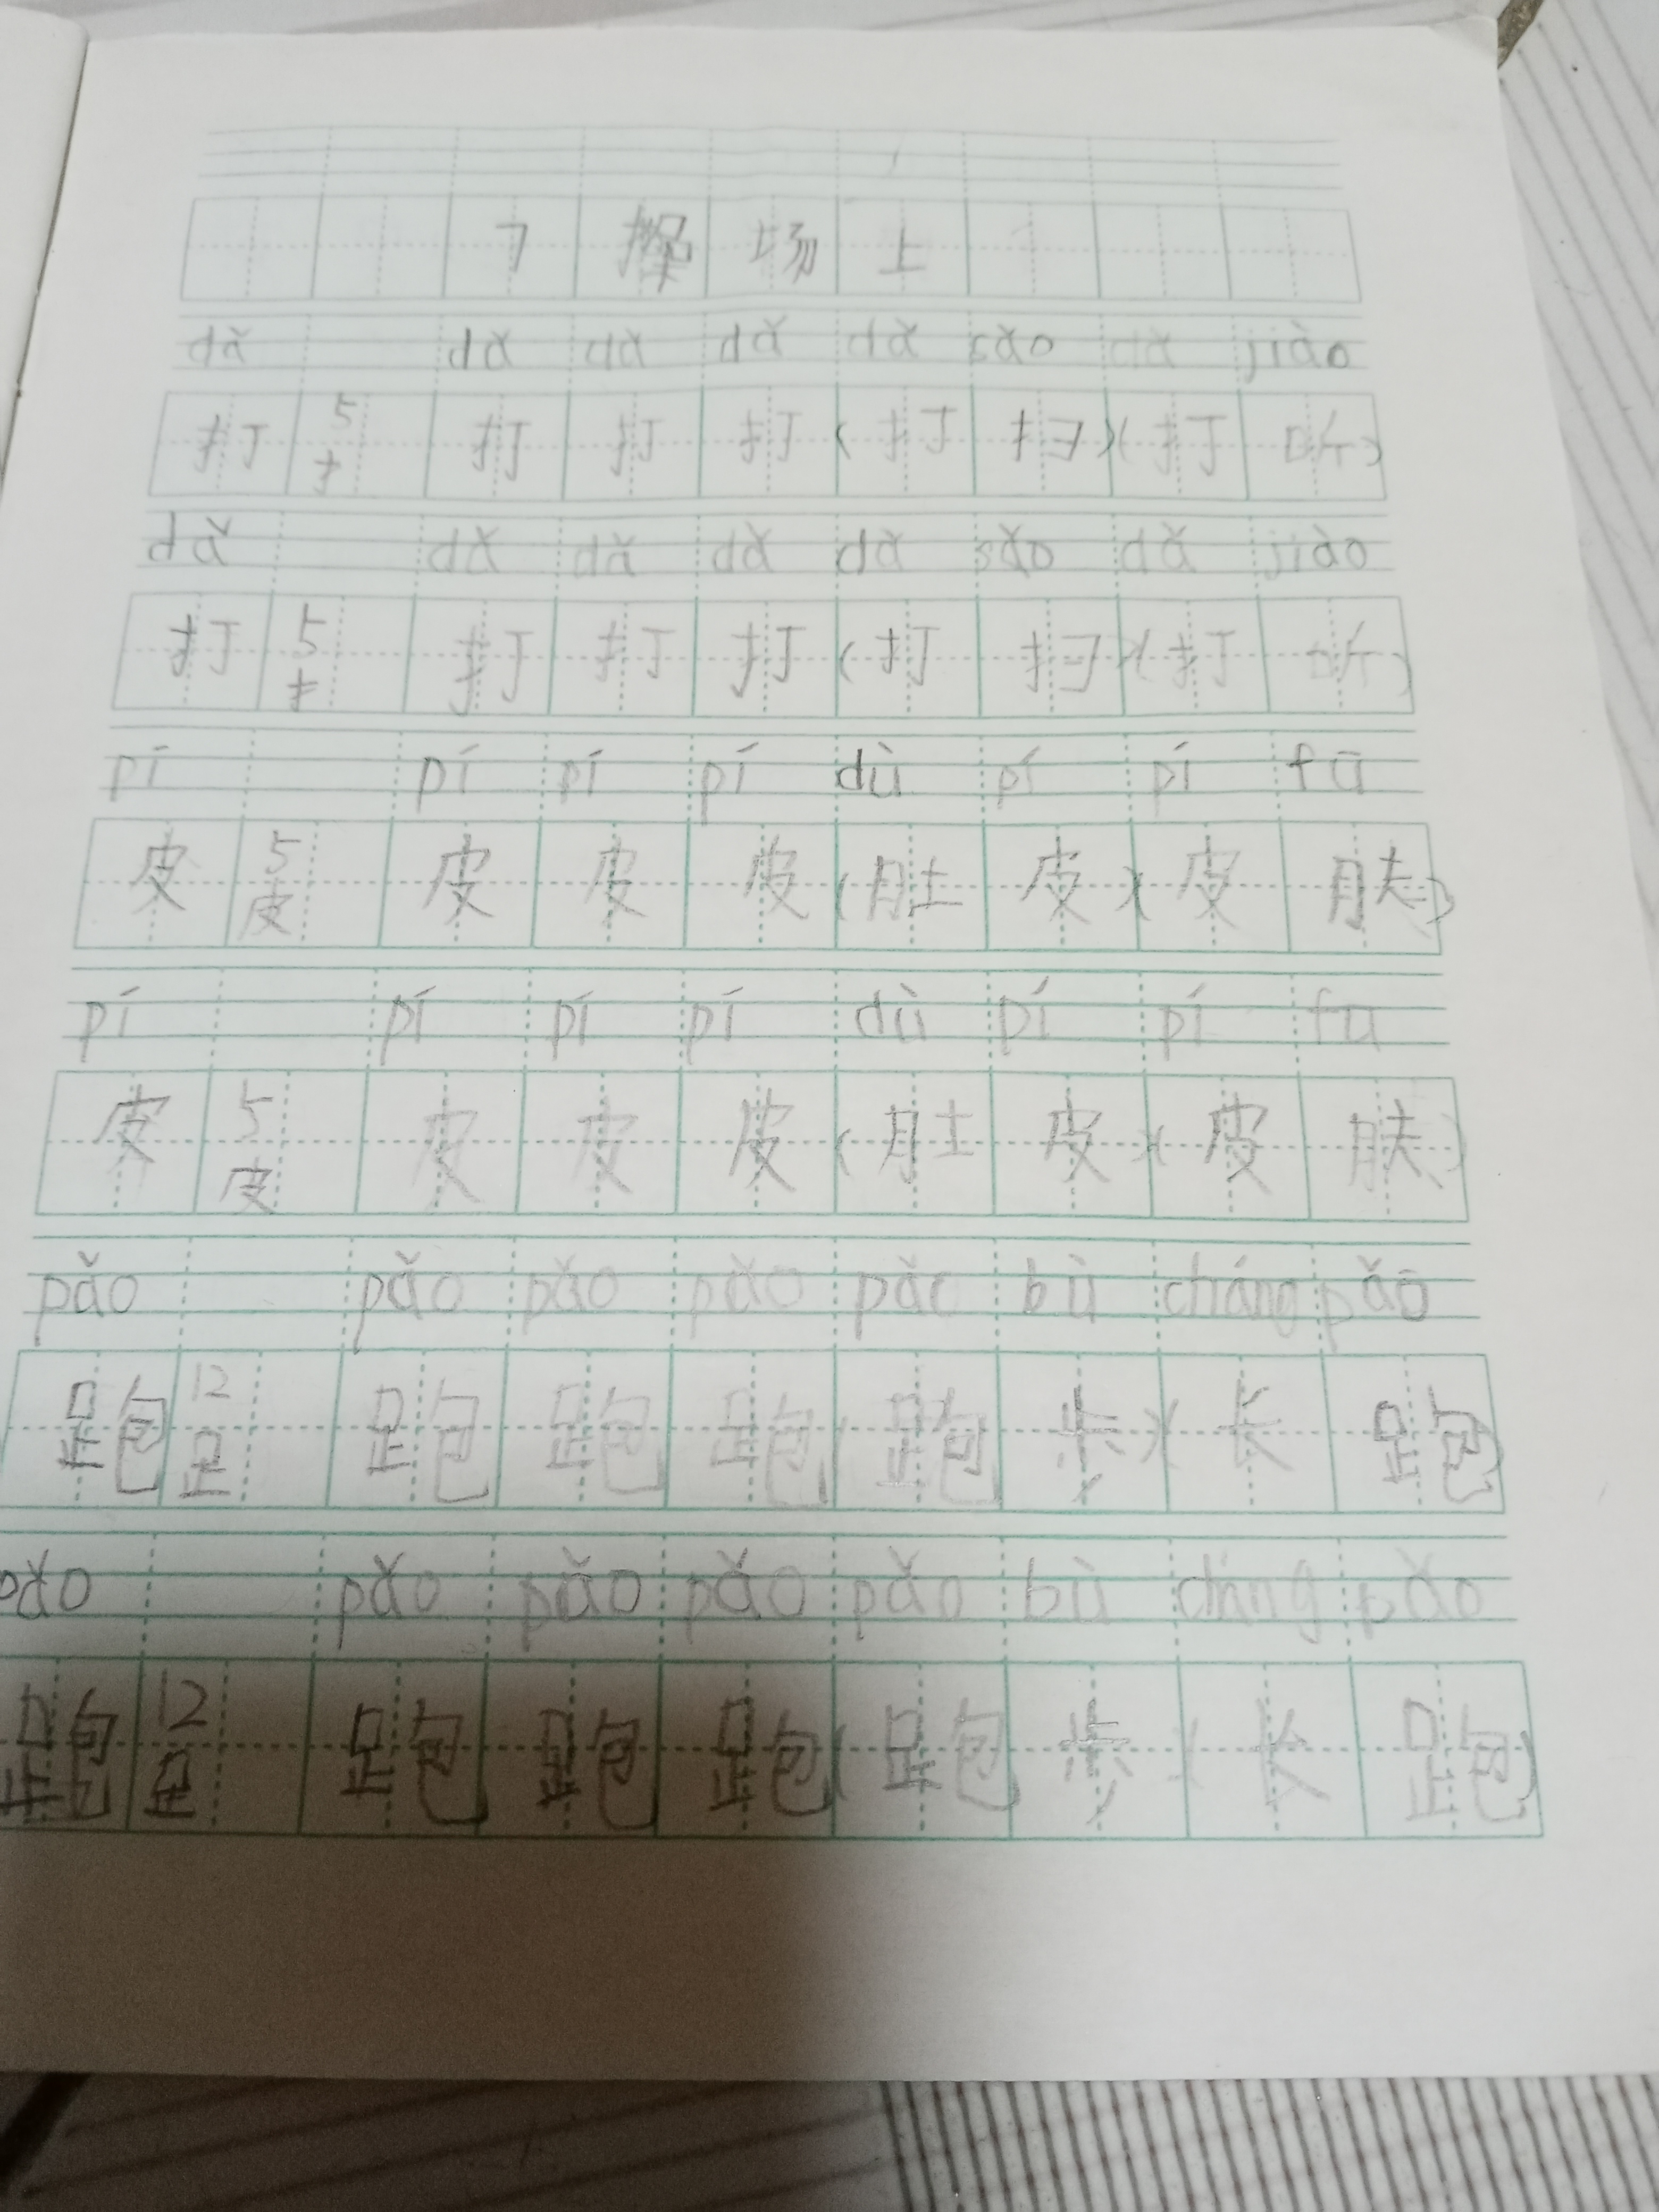 7 操 场 上
dǎ dǎ dǎ dǎ dǎ sǎo dǎ jiào
打 5 扌 打 打 打 (打 扫)(打 听)
dǎ dǎ dǎ dǎ dǎ sǎo dǎ jiào
打 5 扌 打 打 打 (打 扫)(打 听)
pí pí pí pí dù pí pí fū
皮 5 皮 皮 皮 皮 (肚 皮)(皮 肤)
pí pí pí pí dù pí pí fu
皮 5 皮 皮 皮 皮 (肚 皮)(皮 肤)
pǎo pǎo pǎo pǎo pǎo bù cháng pǎo
跑 12 𧾷 跑 跑 跑 (跑 步)(长 跑)
pǎo pǎo pǎo pǎo pǎo bù cháng pǎo
跑 12 𧾷 跑 跑 跑 (跑 步 (长 跑)